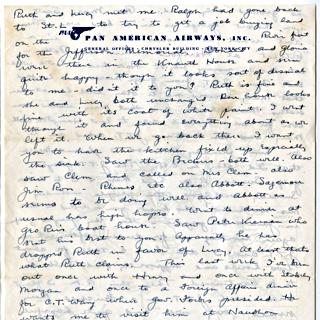 Ruth and Lucy met me. Ralph had gone back
to St. L. to try to get a job buying land
on the Jefferson Memorial.
for the
PAN AMERICAN AIRWAYS, INC.
GENERAL OFFICES - CHRYSLER BUILDING, NEW YORK CITY
were there in the Knauth House and
quite happy - though it looks sort of dismal
to me - did it to you? Ruth is fine and
she and Lucy both unchanged. Our house looks
fine with its coat of white paint. I went
through it and found everything about as we
left it. When we go back there I want
you to have the kitchen fixed up especially
the sink. Saw the both well. Also
saw Clem and called on Mrs Clem - also
Jim etc also Abbot.
seems to be doing well and Abbot as
usual has high hopes. Went to dinner at
Geo boat house. Saw Peter who
sent his best to you. Apparently he has
dropped Ruth in favor of Lucy. At least that's
what Ruth claims. This last week I've been
out once with and once with
Morgan and once to a Foreign Affairs dinner
for C.T. Wang where Gov. Forbes presided. He
wants me to visit him at